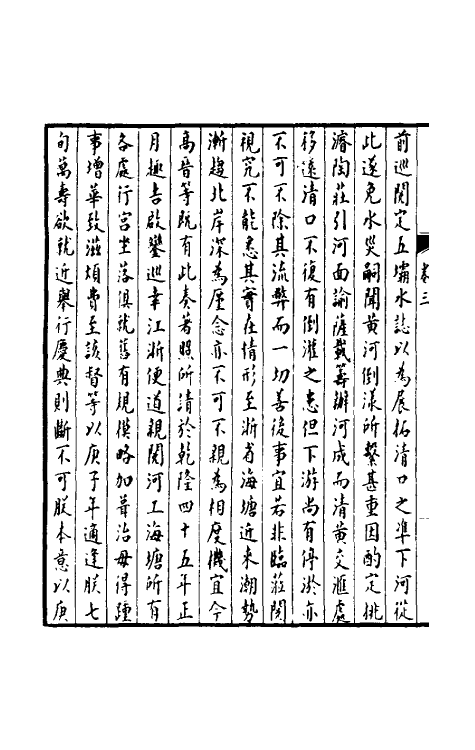 卷三
前巡閱定五壩水誌以為展拓清口之準下河從
此遂免水災嗣聞黃河倒漾所繫甚重因酌定挑
濬陶莊引河面諭薩載籌辦河成而清黃交滙處
移遠清口不復有倒灌之患但下游尚有停淤亦
不可不除其流弊而一切善後事宜若非臨莅閱
視究不能悉其實在情形至浙省海塘近来潮勢
漸趨北岸深為廑念亦不可不親為相度機宜今
高晉等既有此奏著照所請於乾隆四十五年正
月趣吉啟鑾巡幸江浙便道親閱河工海塘所有
各處行宮坐落俱就舊有規模略加葺治毋得踵
事增華致滋煩費至該督等以庚子年適逢朕七
旬萬壽欲就近舉行慶典則斷不可朕本意以庚